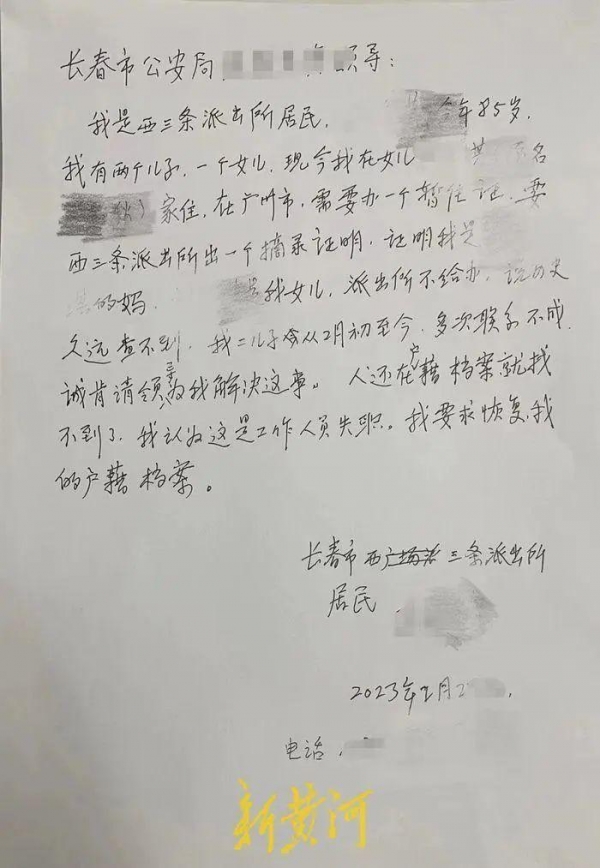 长春市公安局 领导：
我是西三条派出所居民, 今年85岁.
我有两个儿子, 一个女儿, 现今我在女儿 名
家住, 在广州市, 需要办一个暂住证, 要
西三条派出所出一个摘录证明, 证明我是
的妈. 是我女儿, 派出所不给办, 说历史
久远查不到, 我二儿子 从2月初至今, 多次联系不成,
诚肯请领导为我解决这事。 人还在户藉档案就找
不到了, 我认为这是工作人员失职。我要求恢复我
的户藉档案。
长春市 西 三条派出所
居民
2023年2月2
电话.
新黄河